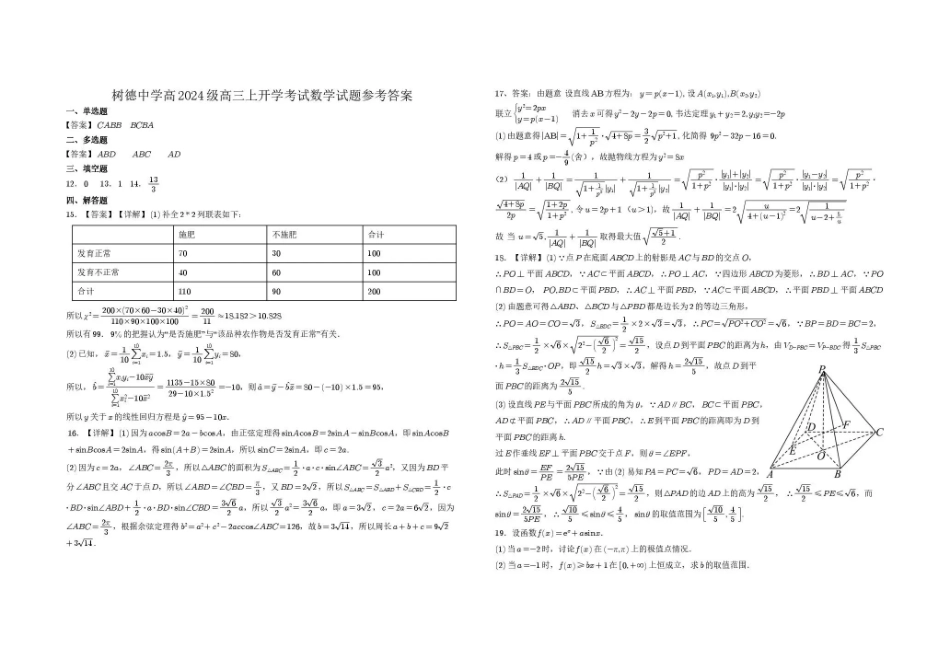 树德中学高2024级高三上开学考试数学试题参考答案
一、单选题
【答案】CABB BCBA
二、多选题
【答案】ABD ABC AD
三、填空题
12. 0 13. 1 14. 13/3
四、解答题
15. 【答案】【详解】(1)补全2*2列联表如下:
施肥 不施肥 合计
发育正常 70 30 100
发育不正常 40 60 100
合计 110 90 200
所以χ²=200×(70×60-30×40)²/(110×90×100×100)=200/11≈18.182>10.828
所以有99.9%的把握认为“是否施肥”与“该品种农作物是否发育正常”有关.
(2)已知, x̄=1/10 ∑xᵢ=1.5, ȳ=1/10 ∑yᵢ=80,
所以, b̂=(∑xᵢyᵢ-10x̄ȳ)/(∑xᵢ²-10x̄²)=(1135-15×80)/(29-10×1.5²)=-10, 则â=ȳ-b̂x̄=80-(-10)×1.5=95,
所以y关于x的线性回归方程是ŷ=95-10x.
16. 【详解】(1)因为acosB=2a-bcosA, 由正弦定理得sinAcosB=2sinA-sinBcosA, 即sinAcosB
+sinBcosA=2sinA, 得sin(A+B)=2sinA, 所以sinC=2sinA, 即c=2a.
(2)因为c=2a, ∠ABC=2π/3, 所以△ABC的面积为S△ABC=1/2·a·c·sin∠ABC=√3/2 a², 又因为BD平
分∠ABC且交AC于点D, 所以∠ABD=∠CBD=π/3, 又BD=2√2, 所以S△ABC=S△ABD+S△CBD=1/2·c
·BD·sin∠ABD+1/2·a·BD·sin∠CBD=3√6/2 a, 所以√3/2 a²=3√6/2 a, 即a=3√2, c=2a=6√2, 因为
∠ABC=2π/3, 根据余弦定理得b²=a²+c²-2accos∠ABC=126, 故b=3√14, 所以周长a+b+c=9√2
+3√14.
17、答案: 由题意 设直线AB方程为: y=p(x-1), 设A(x₁,y₁),B(x₂,y₂)
联立{y²=2px y=p(x-1) 消去x可得y²-2y-2p=0, 韦达定理y₁+y₂=2,y₁y₂=-2p
(1)由题意得|AB|=√(1+1/p²)·√(4+8p)=3/2 √(p²+1), 化简得 9p²-32p-16=0.
解得p=4或p=-4/9(舍), 故抛物线方程为y²=8x
(2) 1/|AQ|+1/|BQ|=1/(√(1+1/p²)|y₁|)+1/(√(1+1/p²)|y₂|)=√(p²/(1+p²))·(|y₁|+|y₂|)/(|y₁|·|y₂|)=√(p²/(1+p²))·|y₁-y₂|/(|y₁|·|y₂|)=√(p²/(1+p²))·
√(4+8p)/2p=√((1+2p)/(1+p²)), 令u=2p+1 (u>1), 故1/|AQ|+1/|BQ|=2√(u/(4+(u-1)²))=2√(1/(u-2+5/u))
故 当u=√5, 1/|AQ|+1/|BQ|取得最大值√((√5+1)/2).
18. 【详解】(1)∵点P在底面ABCD上的射影是AC与BD的交点O,
∴PO⊥平面ABCD, ∵AC⊂平面ABCD, ∴PO⊥AC, ∵四边形ABCD为菱形, ∴BD⊥AC, ∵PO
∩BD=O, PO,BD⊂平面PBD, ∴AC⊥平面PBD, ∵AC⊂平面ABCD, ∴平面PBD⊥平面ABCD
(2)由题意可得△ABD、△BCD与△PBD都是边长为2的等边三角形,
∴PO=AO=CO=√3, S△BDC=1/2×2×√3=√3, ∴PC=√(PO²+CO²)=√6, ∵BP=BD=BC=2,
∴S△PBC=1/2×√6×√(2²-(√6/2)²)=√15/2, 设点D到平面PBC的距离为h, 由V_D-PBC=V_P-BDC得1/3 S△PBC
·h=1/3 S△BDC·OP, 即√15/2 h=√3×√3, 解得h=2√15/5, 故点D到平
面PBC的距离为2√15/5.
(3)设直线PE与平面PBC所成的角为θ, ∵AD∥BC, BC⊂平面PBC,
AD⊄平面PBC, ∴AD∥平面PBC, ∴E到平面PBC的距离即为D到
平面PBC的距离h.
过E作垂线EF⊥平面PBC交于点F, 则θ=∠EPF,
此时sinθ=EF/PE=2√15/5PE, ∵由(2)易知PA=PC=√6, PD=AD=2,
∴S△PAD=1/2×√6×√(2²-(√6/2)²)=√15/2, 则△PAD的边AD上的高为√15/2, ∴√15/2≤PE≤√6, 而
sinθ=2√15/5PE, ∴√10/5≤sinθ≤4/5, sinθ的取值范围为[√10/5,4/5].
P
F
D
C
E
O
A
B
19. 设函数f(x)=eˣ+asinx.
(1)当a=-2时, 讨论f(x)在(-π,π)上的极值点情况.
(2)当a=-1时, f(x)≥bx+1在[0,+∞)上恒成立, 求b的取值范围.